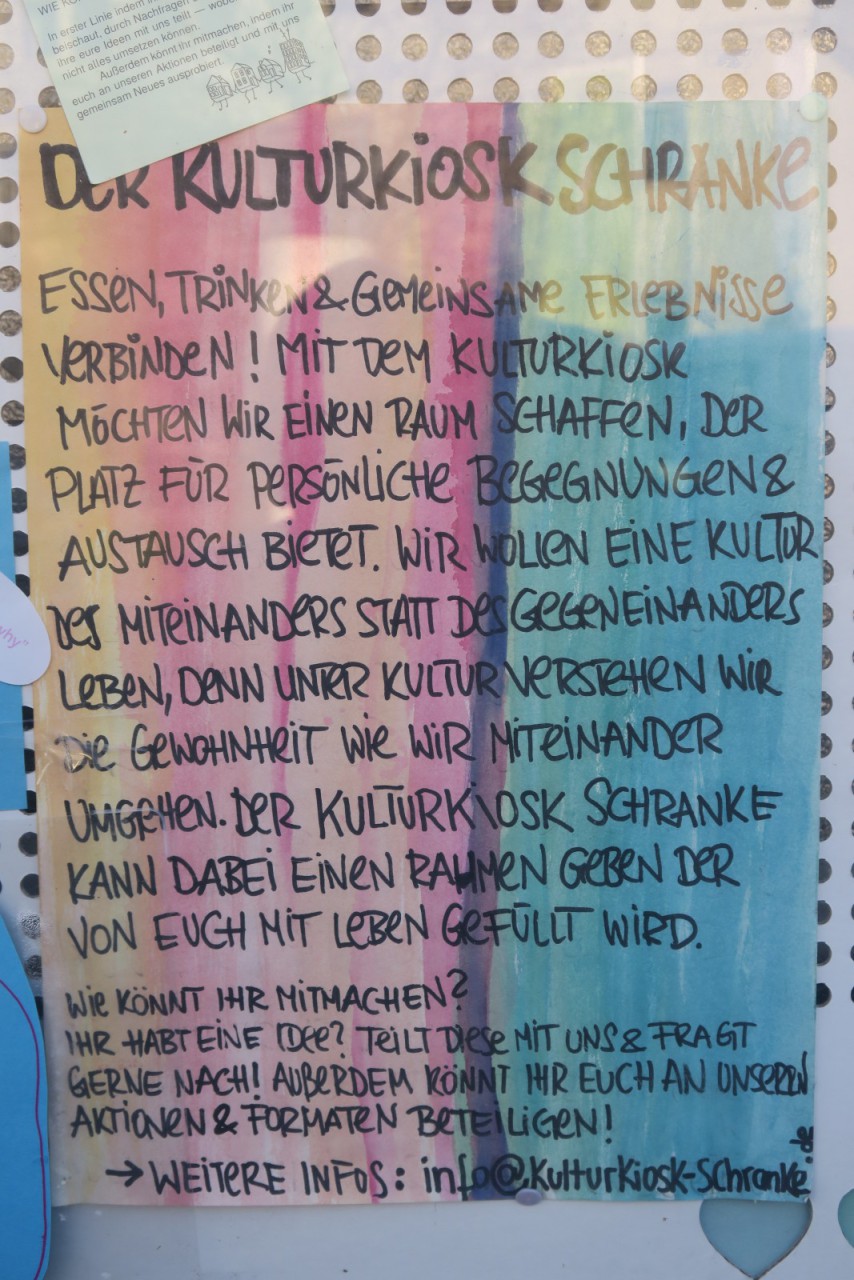 In erster Linie indem ihr
beischaut, durch Nachfragen
ihre eure Ideen mit uns teilt — wobei
nicht alles umsetzen können.
Außerdem könnt ihr mitmachen, indem ihr
euch an unseren Aktionen beteiligt und mit uns
gemeinsam Neues ausprobiert.
DER KULTURKiOSK SCHRANKe
ESSEN, TRiNKEN & GEMEiNSAME ERLEBNiSSE
VERBiNDEN! MiT DEM KULTURKiOSK
MÖCHTEN WiR EiNEN RAUM SCHAFFEN, DER
PLATZ FÜR PERSÖNLiCHE BEGEGNUNGEN &
AUSTAUSCH BiETET. WiR WOLLEN EiNE KULTUR
DES MiTEiNANDERS STATT DES GEGENEiNANDERS
LEBEN, DENN UNTER KULTUR VERSTEHEN WiR
DiE GEWOHNHEiT WiE WiR MiTEiNANDER
UMGEHEN. DER KULTURKIOSK SCHRANKE
KANN DABEi EiNEN RAHMEN GEBEN DER
VON EUCH MiT LEBEN GEFÜLLT WiRD.
WiE KÖNNT IHR MiTMACHEN?
IHR HABT EiNE IDEE? TEiLT DiESE MiT UNS & FRAGT
GERNE NACH! AUßERDEM KÖNNT IHR EUCH AN UNSEREN
AKTiONEN & FORMATEN BETEiLiGEN!
→ WEiTERE INFOS: info@Kulturkiosk-Schranke.de
why"